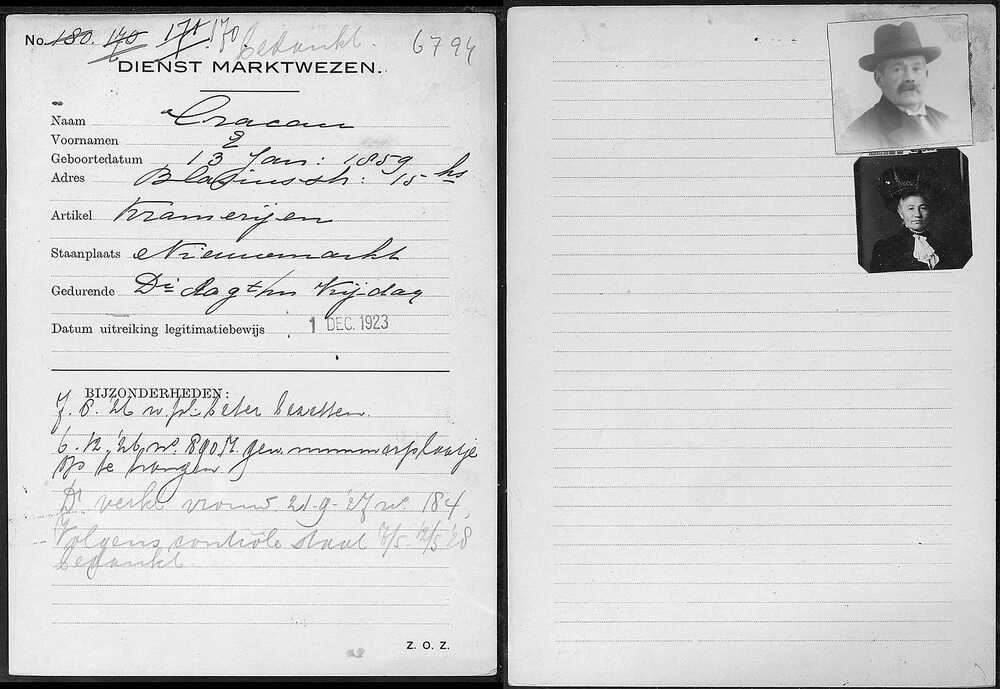 No. 180. 170 171. 170. bedankt. 6794
DIENST MARKTWEZEN.
Naam Cracau
Voornamen
Geboortedatum 13 Jan: 1859
Adres Blasiusstr: 15 hs
Artikel Kramerijen
Staanplaats Nieuwmarkt
Gedurende Vrijdag
Datum uitreiking legitimatiebewijs 1 DEC. 1923
BIJZONDERHEDEN:
7. 8. '26 w. pl. beter bezetten.
6. 12. '26. gew. nummerplaatje
op te hangen.
Dr verkl vrouw 21-9-'27 no 184.
Volgens contrôle staat 7/5-12/5 '28
bedankt.
Z. O. Z.